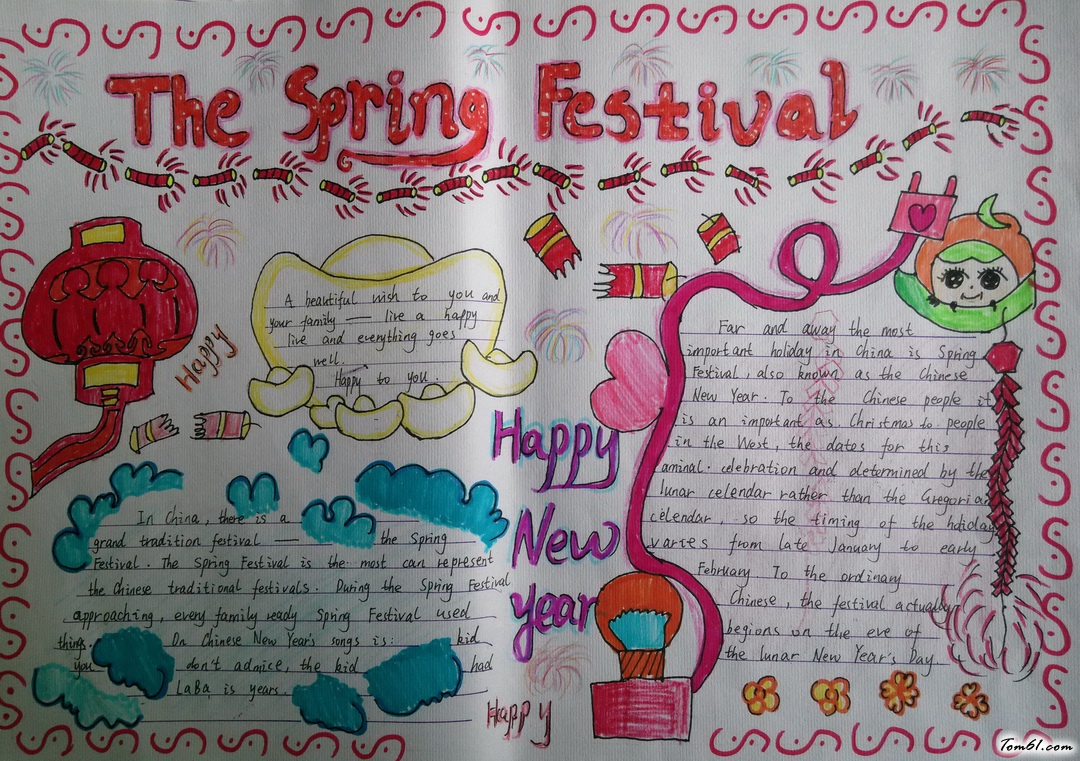 The Spring Festival
Happy
A beautiful wish to you and
your family — live a happy
live and everything goes
well.
Happy to you.
Happy
New
year
In China, there is a
grand tradition festival — the Spring
Festival. The Spring Festival is the most can represent
the Chinese traditional festivals. During the Spring Festival
approaching, every family ready Spring Festival used
things. On Chinese New Year's songs is: kid
you don't admice, the kid had
LaBa is years.
Happy
Far and away the most
important holiday in China is Spring
Festival, also known as the Chinese
New Year. To the Chinese people it
is an important as Christmas to people
in the West, the dates for this
aminal. celebration and determined by the
lunar celendar rather than the Gregorian
celendar, so the timing of the hdioday
varies from late January to early
February To the ordinary
Chinese, the festival actually
begions on the eve of
the lunar New Year's Day.
Tom61.com